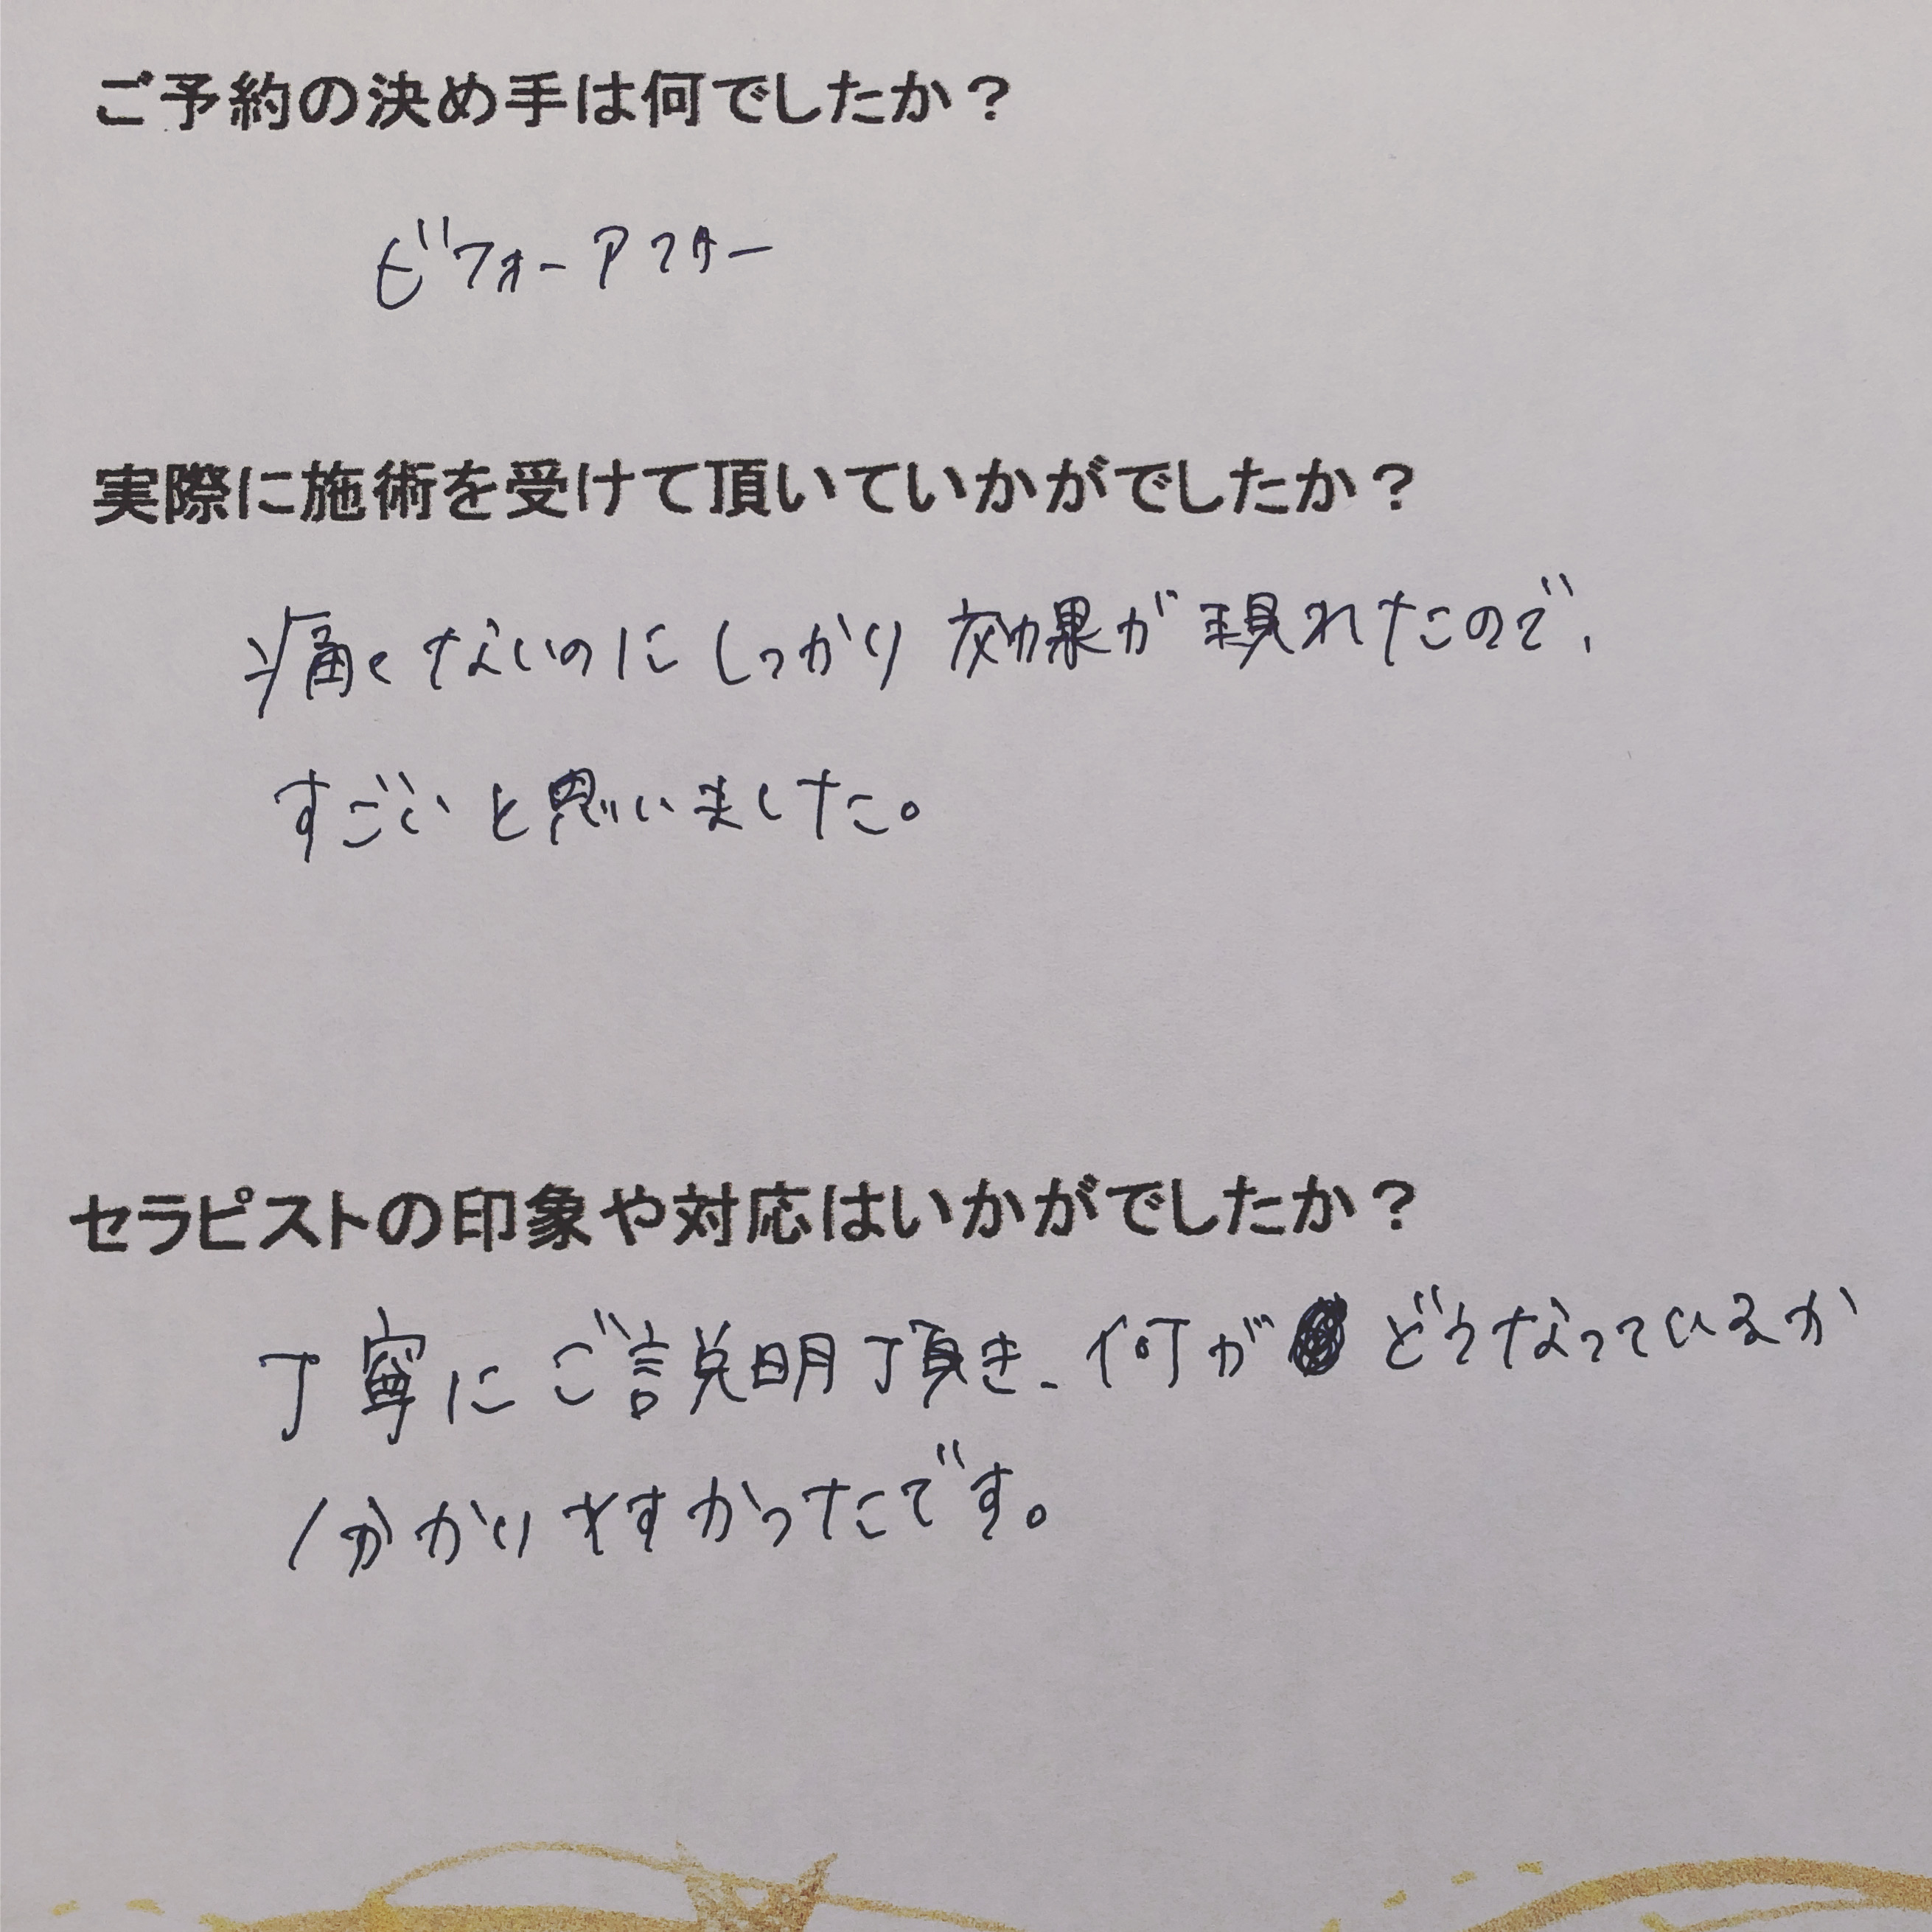 ご予約の決め手は何でしたか？
ビフォーアフター
実際に施術を受けて頂いていかがでしたか？
痛くないのにしっかり効果が現れたので、
すごいと思いました。
セラピストの印象や対応はいかがでしたか？
丁寧にご説明頂き、何がどうなっているか
分かりやすかったです。